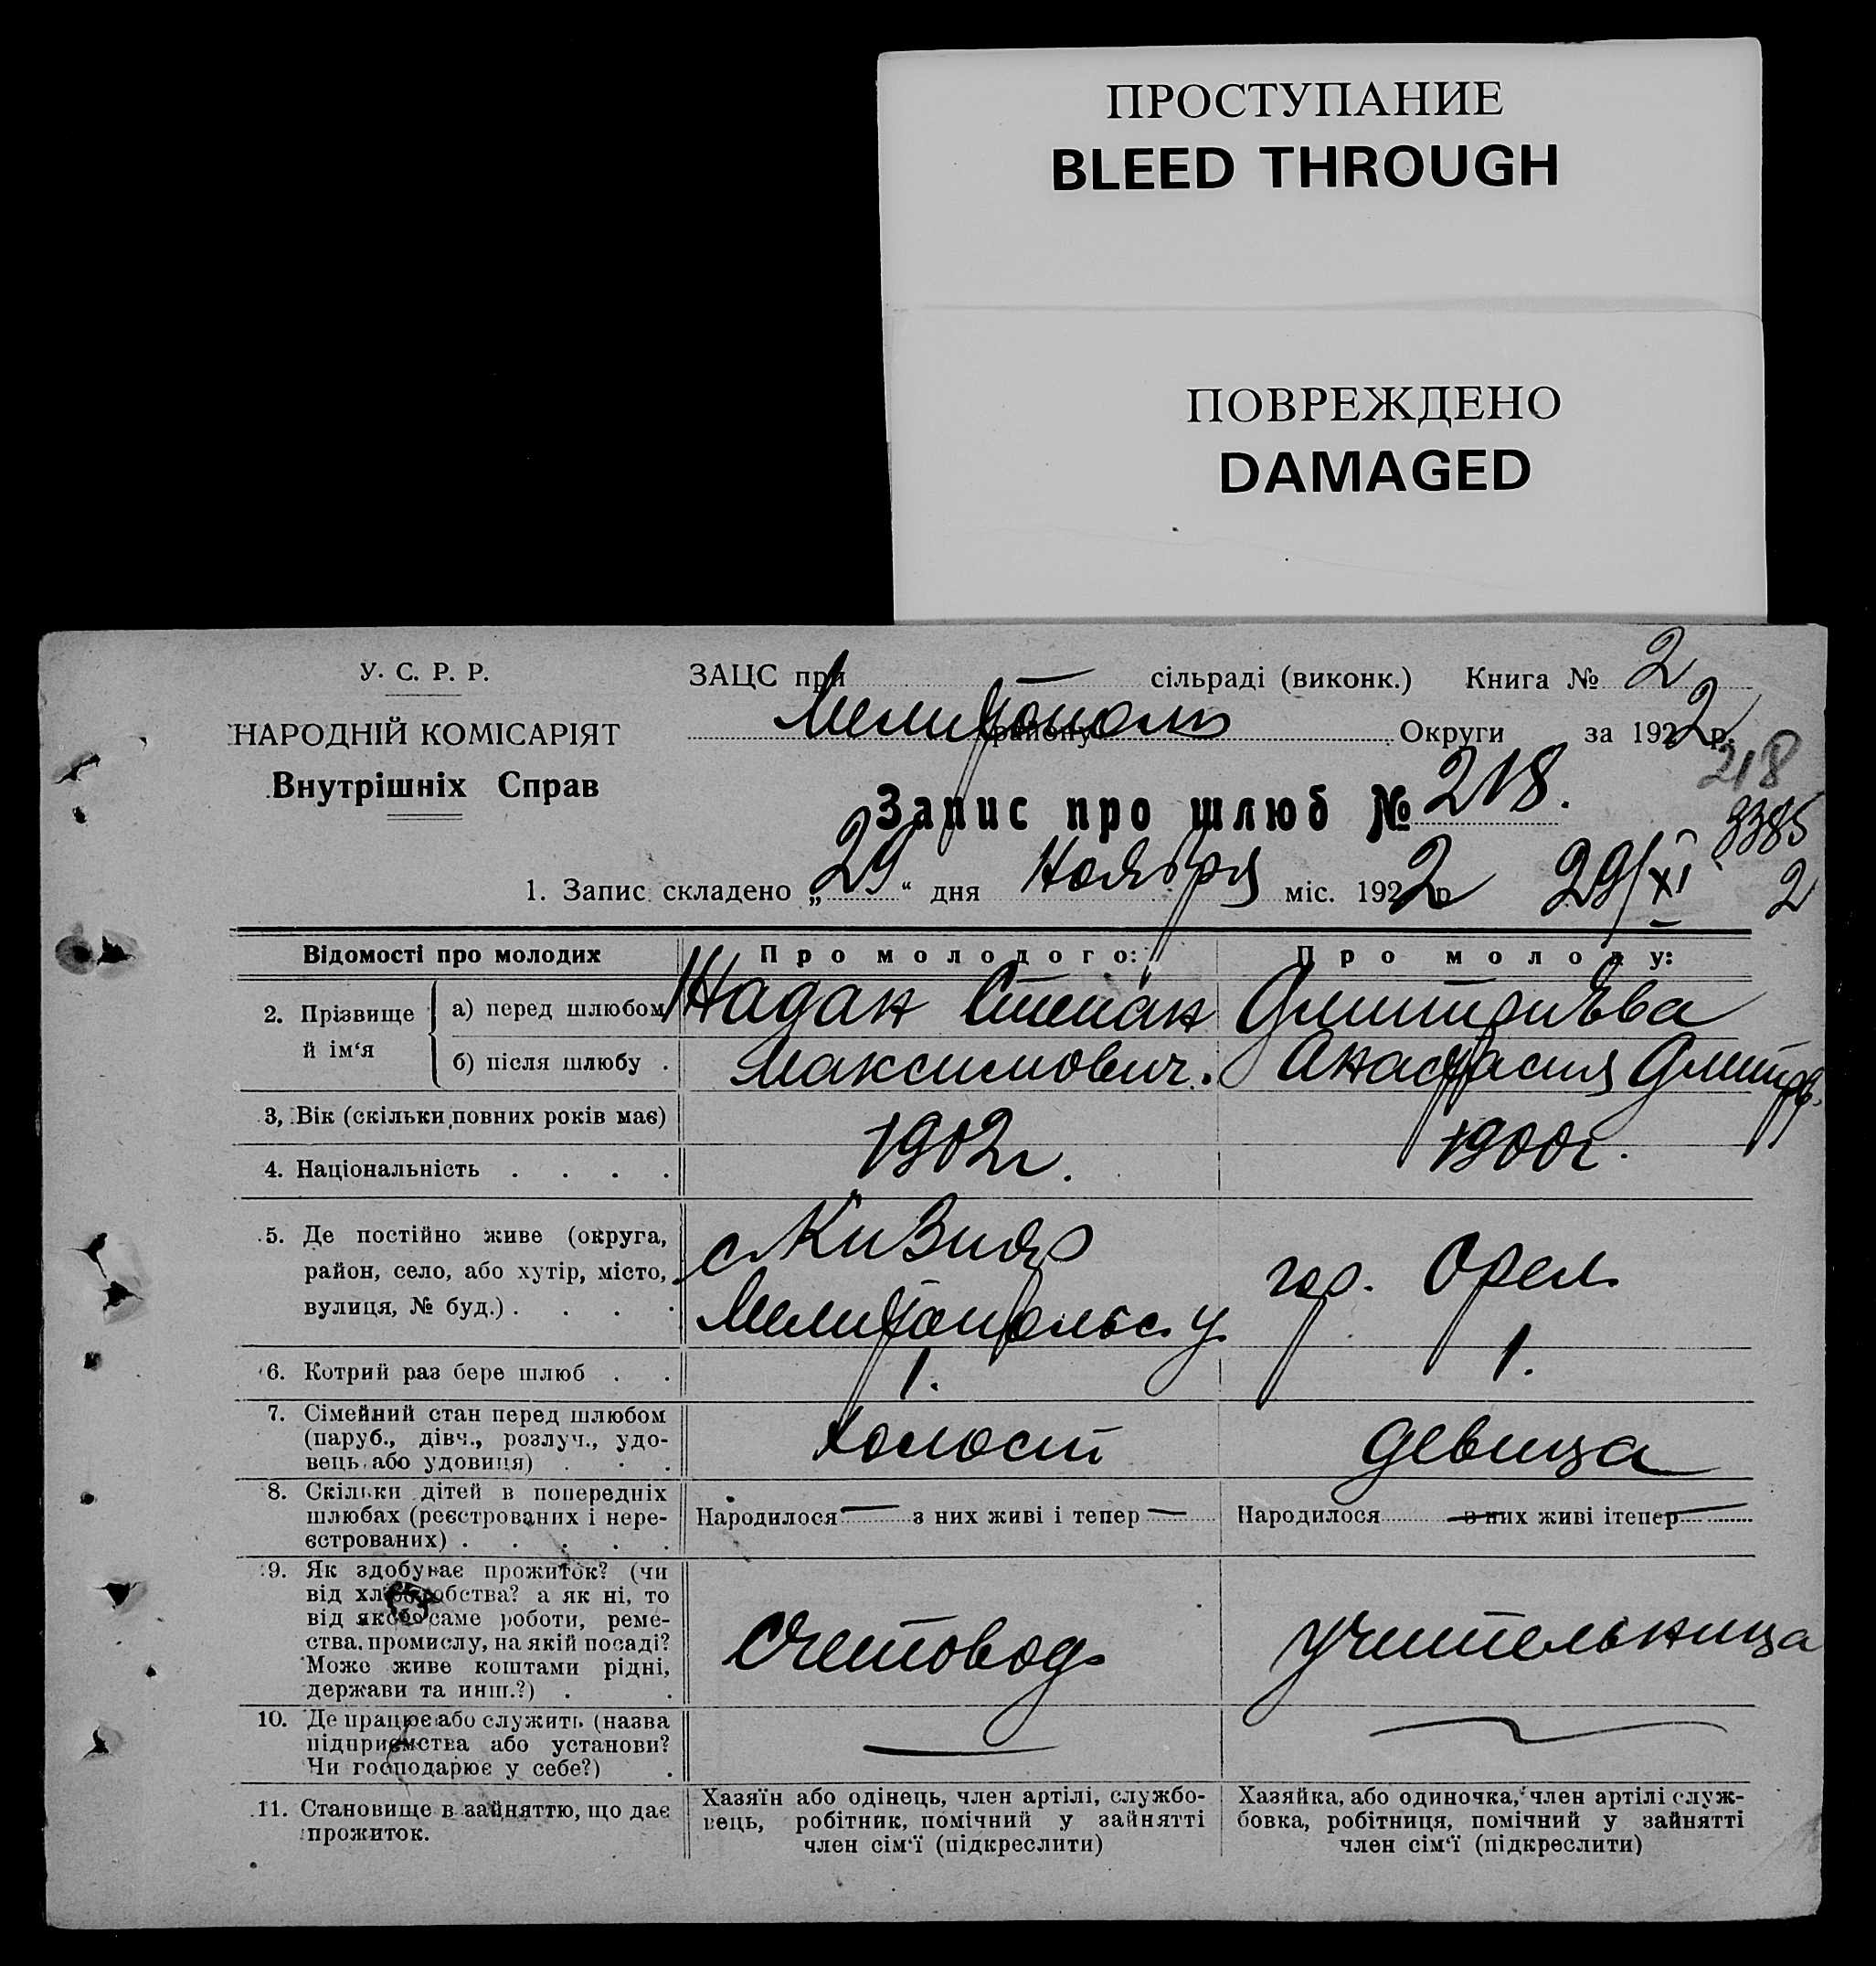 ПРОСТУПАНИЕ
BLEED THROUGH
ПОВРЕЖДЕНО
DAMAGED
У. С. Р. Р.
НАРОДНІЙ КОМІСАРІЯТ
Внутрішніх Справ
ЗАЦС при — сільраді (виконк.) Книга № 2
Мелитополь району Округи за 1922 р.
218
Запис про шлюб № 218.
3385
1. Запис складено „29“ дня Ноября міс. 1922 р 29/XI 2
Відомості про молодих Про молодого: Про молоду:
2. Прізвище й ім‘я
а) перед шлюбом Надак Степан Дмитриева
б) після шлюбу . Максимович. Анастасия Дмитр.
3, Вік (скільки повних років має) 1902г. 1900г.
4. Національність . . . .
5. Де постійно живе (округа,
район, село, або хутір, місто,
вулиця, № буд.) . . . .
с. Кизияр
Мелитопольс. у.
гор. Орел
6. Котрий раз бере шлюб . . 1. 1.
7. Сімейний стан перед шлюбом
(паруб., дівч., розлуч., удо-
вець або удовиця) . . .
холост девица
8. Скільки дітей в попередніх
шлюбах (реєстрованих і нере-
єстрованих) . . . . .
Народилося — з них живі і тепер — Народилося з них живі ітепер —
9. Як здобуває прожиток? (чи
від хліборобства? а як ні, то
від якого саме роботи, реме-
ства, промислу, на якій посаді?
Може живе коштами рідні,
держави та инш.?) . .
Счетовод учительница
10. Де працює або служить (назва
підприємства або установи?
Чи господарює у себе?) .
11. Становище в зайняттю, що дає
прожиток.
Хазяїн або одінець, член артілі, службо-
вець, робітник, помічний у зайнятті
член сім‘ї (підкреслити)
Хазяйка, або одиночка, член артілі служ-
бовка, робітниця, помічний у зайнятті
член сім‘ї (підкреслити)